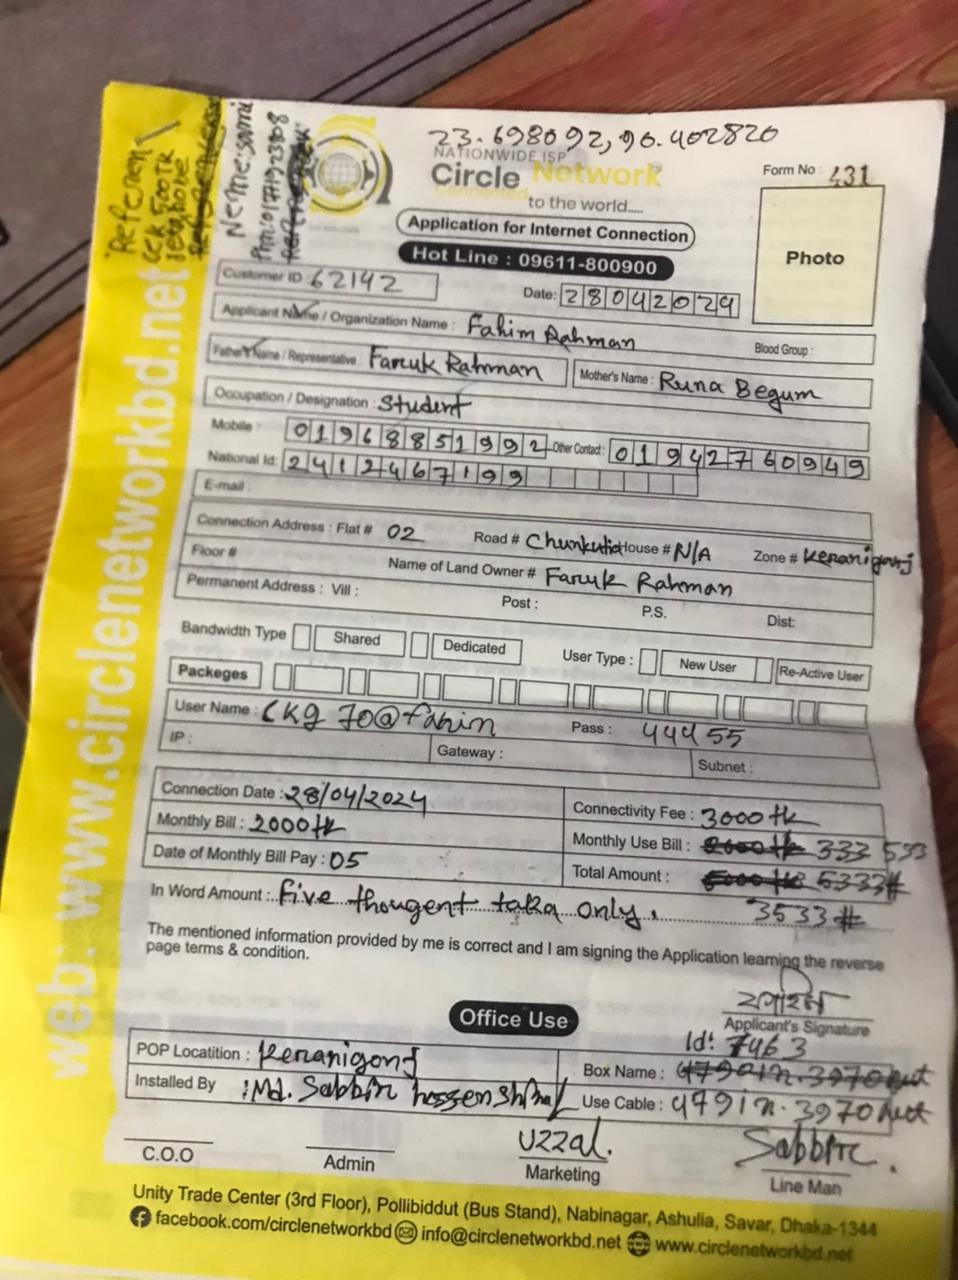 23.698092, 90.402820
Neme: sami
NATIONWIDE ISP
Circle Network
Connected
to the world.....
Form No : 431
Application for Internet Connection
Hot Line : 09611-800900
Photo
Customer ID : 62142
Date: 28042024
Applicant Name / Organization Name : Fahim Rahman
Blood Group :
Father's Name / Representative : Faruk Rahman
Mother's Name : Runa Begum
Occupation / Designation : Student
Mobile : 01968851992 Other Contact : 01942760949
National Id: 2412467199
E-mail :
Connection Address : Flat # 02 Road # Chunkutia House # N/A Zone # Keranigonj
Floor # Name of Land Owner # Faruk Rahman
Permanent Address : Vill : Post : P.S. Dist:
Bandwidth Type Shared Dedicated User Type : New User Re-Active User
Packeges
User Name : CKG 70@fahim Pass : 44455
IP : Gateway : Subnet :
Connection Date : 28/04/2024 Connectivity Fee : 3000 tk
Monthly Bill : 2000 tk Monthly Use Bill : 2000 tk 333 533
Date of Monthly Bill Pay : 05 Total Amount : 5000 tk 5333#
In Word Amount : five thougent taka only. 3533#
The mentioned information provided by me is correct and I am signing the Application learning the reverse
page terms & condition.
Applicant's Signature
Office Use
Id: 7463
POP Locatition : Keranigonj Box Name :
Installed By : Md. Sabbir hossen Use Cable :
Uzzal. Sabbir.
C.O.O Admin Marketing Line Man
Unity Trade Center (3rd Floor), Pollibiddut (Bus Stand), Nabinagar, Ashulia, Savar, Dhaka-1344
facebook.com/circlenetworkbd info@circlenetworkbd.net www.circlenetworkbd.net
web: www.circlenetworkbd.net